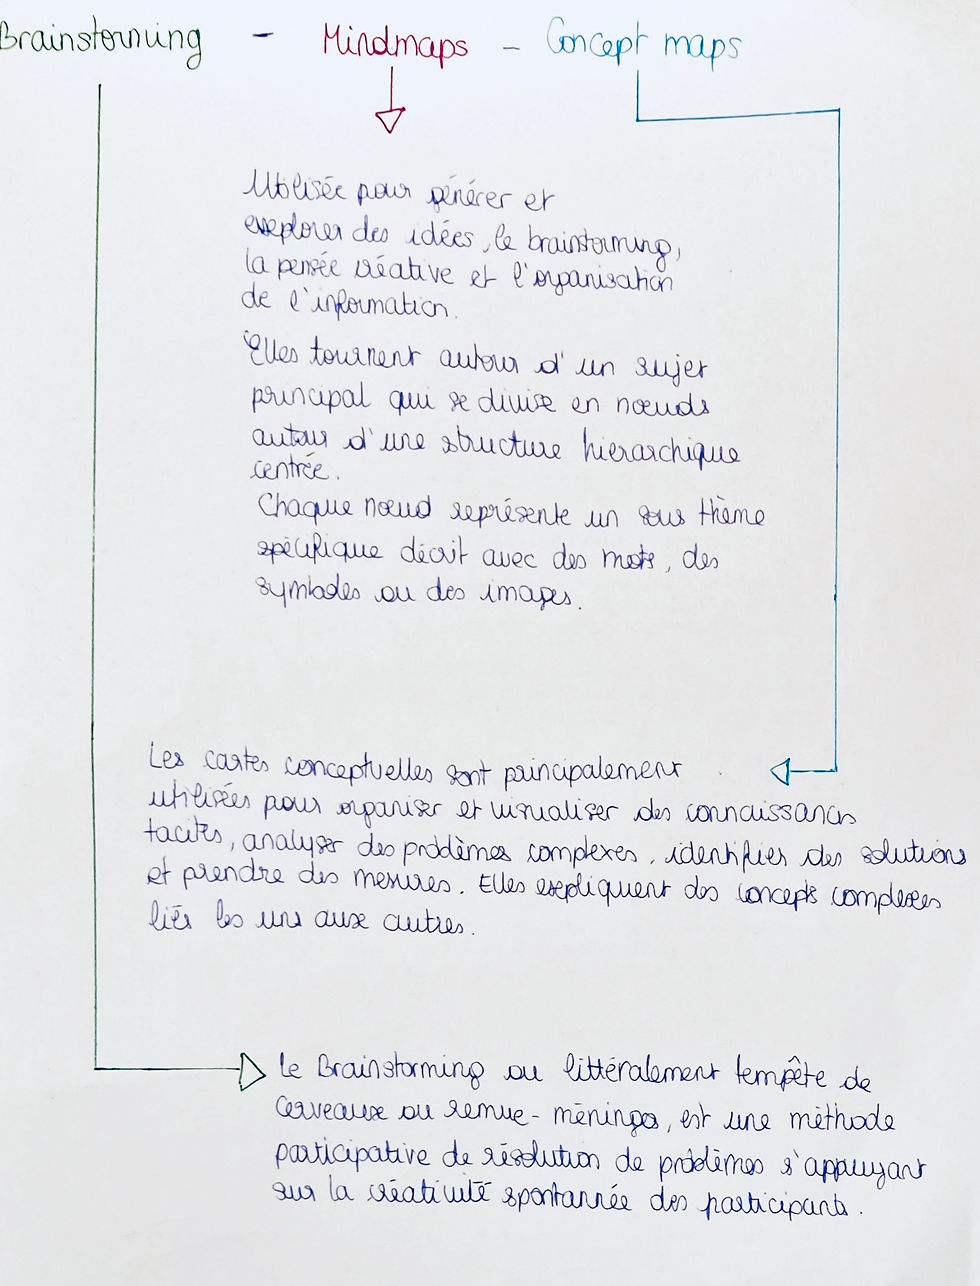 Brainstorming - Mindmaps - Concept maps
Utilisée pour générer et
explorer des idées, le brainstorming,
la pensée créative et l'organisation
de l'information.
Elles tournent autour d'un sujet
principal qui se divise en nœuds
autour d'une structure hierarchique
centrée.
Chaque nœud représente un sous thème
spécifique décrit avec des mots, des
symboles ou des images.
Les cartes conceptuelles sont principalement
utilisées pour organiser et visualiser des connaissances
tacites, analyser des problèmes complexes, identifier des solutions
et prendre des mesures. Elles expliquent des concepts complexes
liés les uns aux autres.
Le Brainstorming ou littéralement tempête de
cerveaux ou remue-méninges, est une méthode
participative de résolution de problèmes s'appuyant
sur la créativité spontannée des participants.